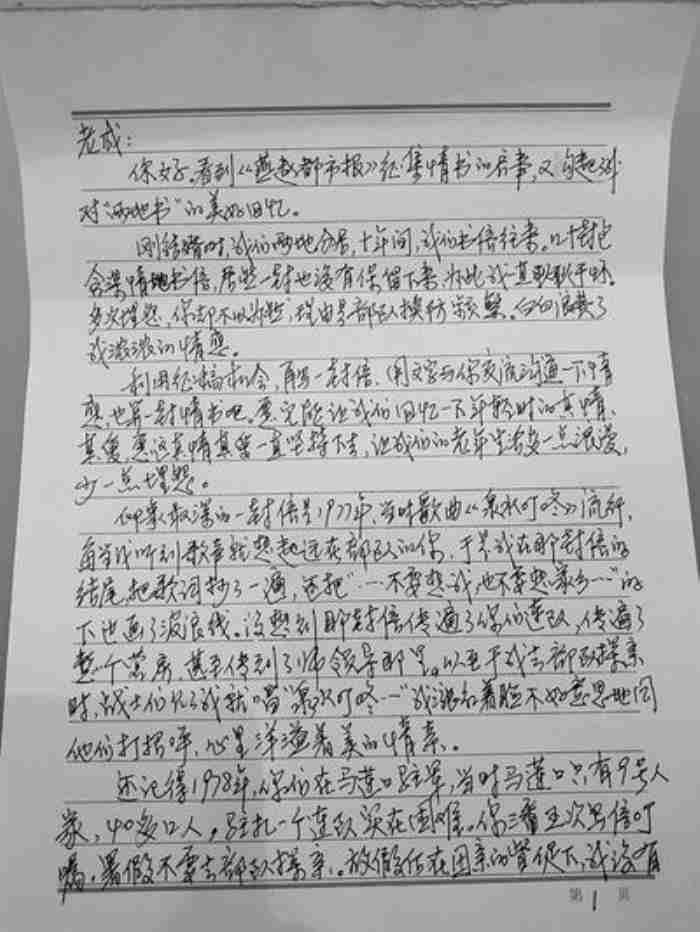 老成:
你好。看到《燕赵都市报》征集情书的启事,又勾起我
对“两地书”的美好回忆。
刚结婚时,我们两地分居,十年间,我们书信往来。几十封包
含深情的书信,居然一封也没有保留下来,为此我一直耿耿于怀。
多次埋怨,你却不以为然,理由是部队换防频繁。白白浪费了
我浓浓的情意。
利用征稿机会,再写一封信,用文字与你交流沟通一下情
感,也算一封情书吧。意在能让我们回忆一下年轻时的真情、
真爱,愿这真情真爱一直坚持下去,让我们的老年生活多一点浪漫,
少一点埋怨。
印象最深的一封信是1977年,当时歌曲《泉水叮咚》流行,
每当我听到歌声就想起远在部队的你,于是我在那封信的
结尾,把歌词抄了一遍,还把“…不要想我,也不要想家乡…”的
下边画了波浪线。没想到那封信传遍了你们连队,传遍了
整个营房,甚至传到了师领导那里。以至于我去部队探亲
时,战士们见了我就唱“泉水叮咚…”我涨红着脸不好意思地同
他们打招呼,心里洋溢着美的情素。
还记得1978年,你们在马莲口驻军,当时马莲口只有9号人
家,40多口人,驻扎一个连队实在困难。你三番五次写信叮
嘱,暑假不要去部队探亲。放假后在母亲的督促下,我没有
第1页